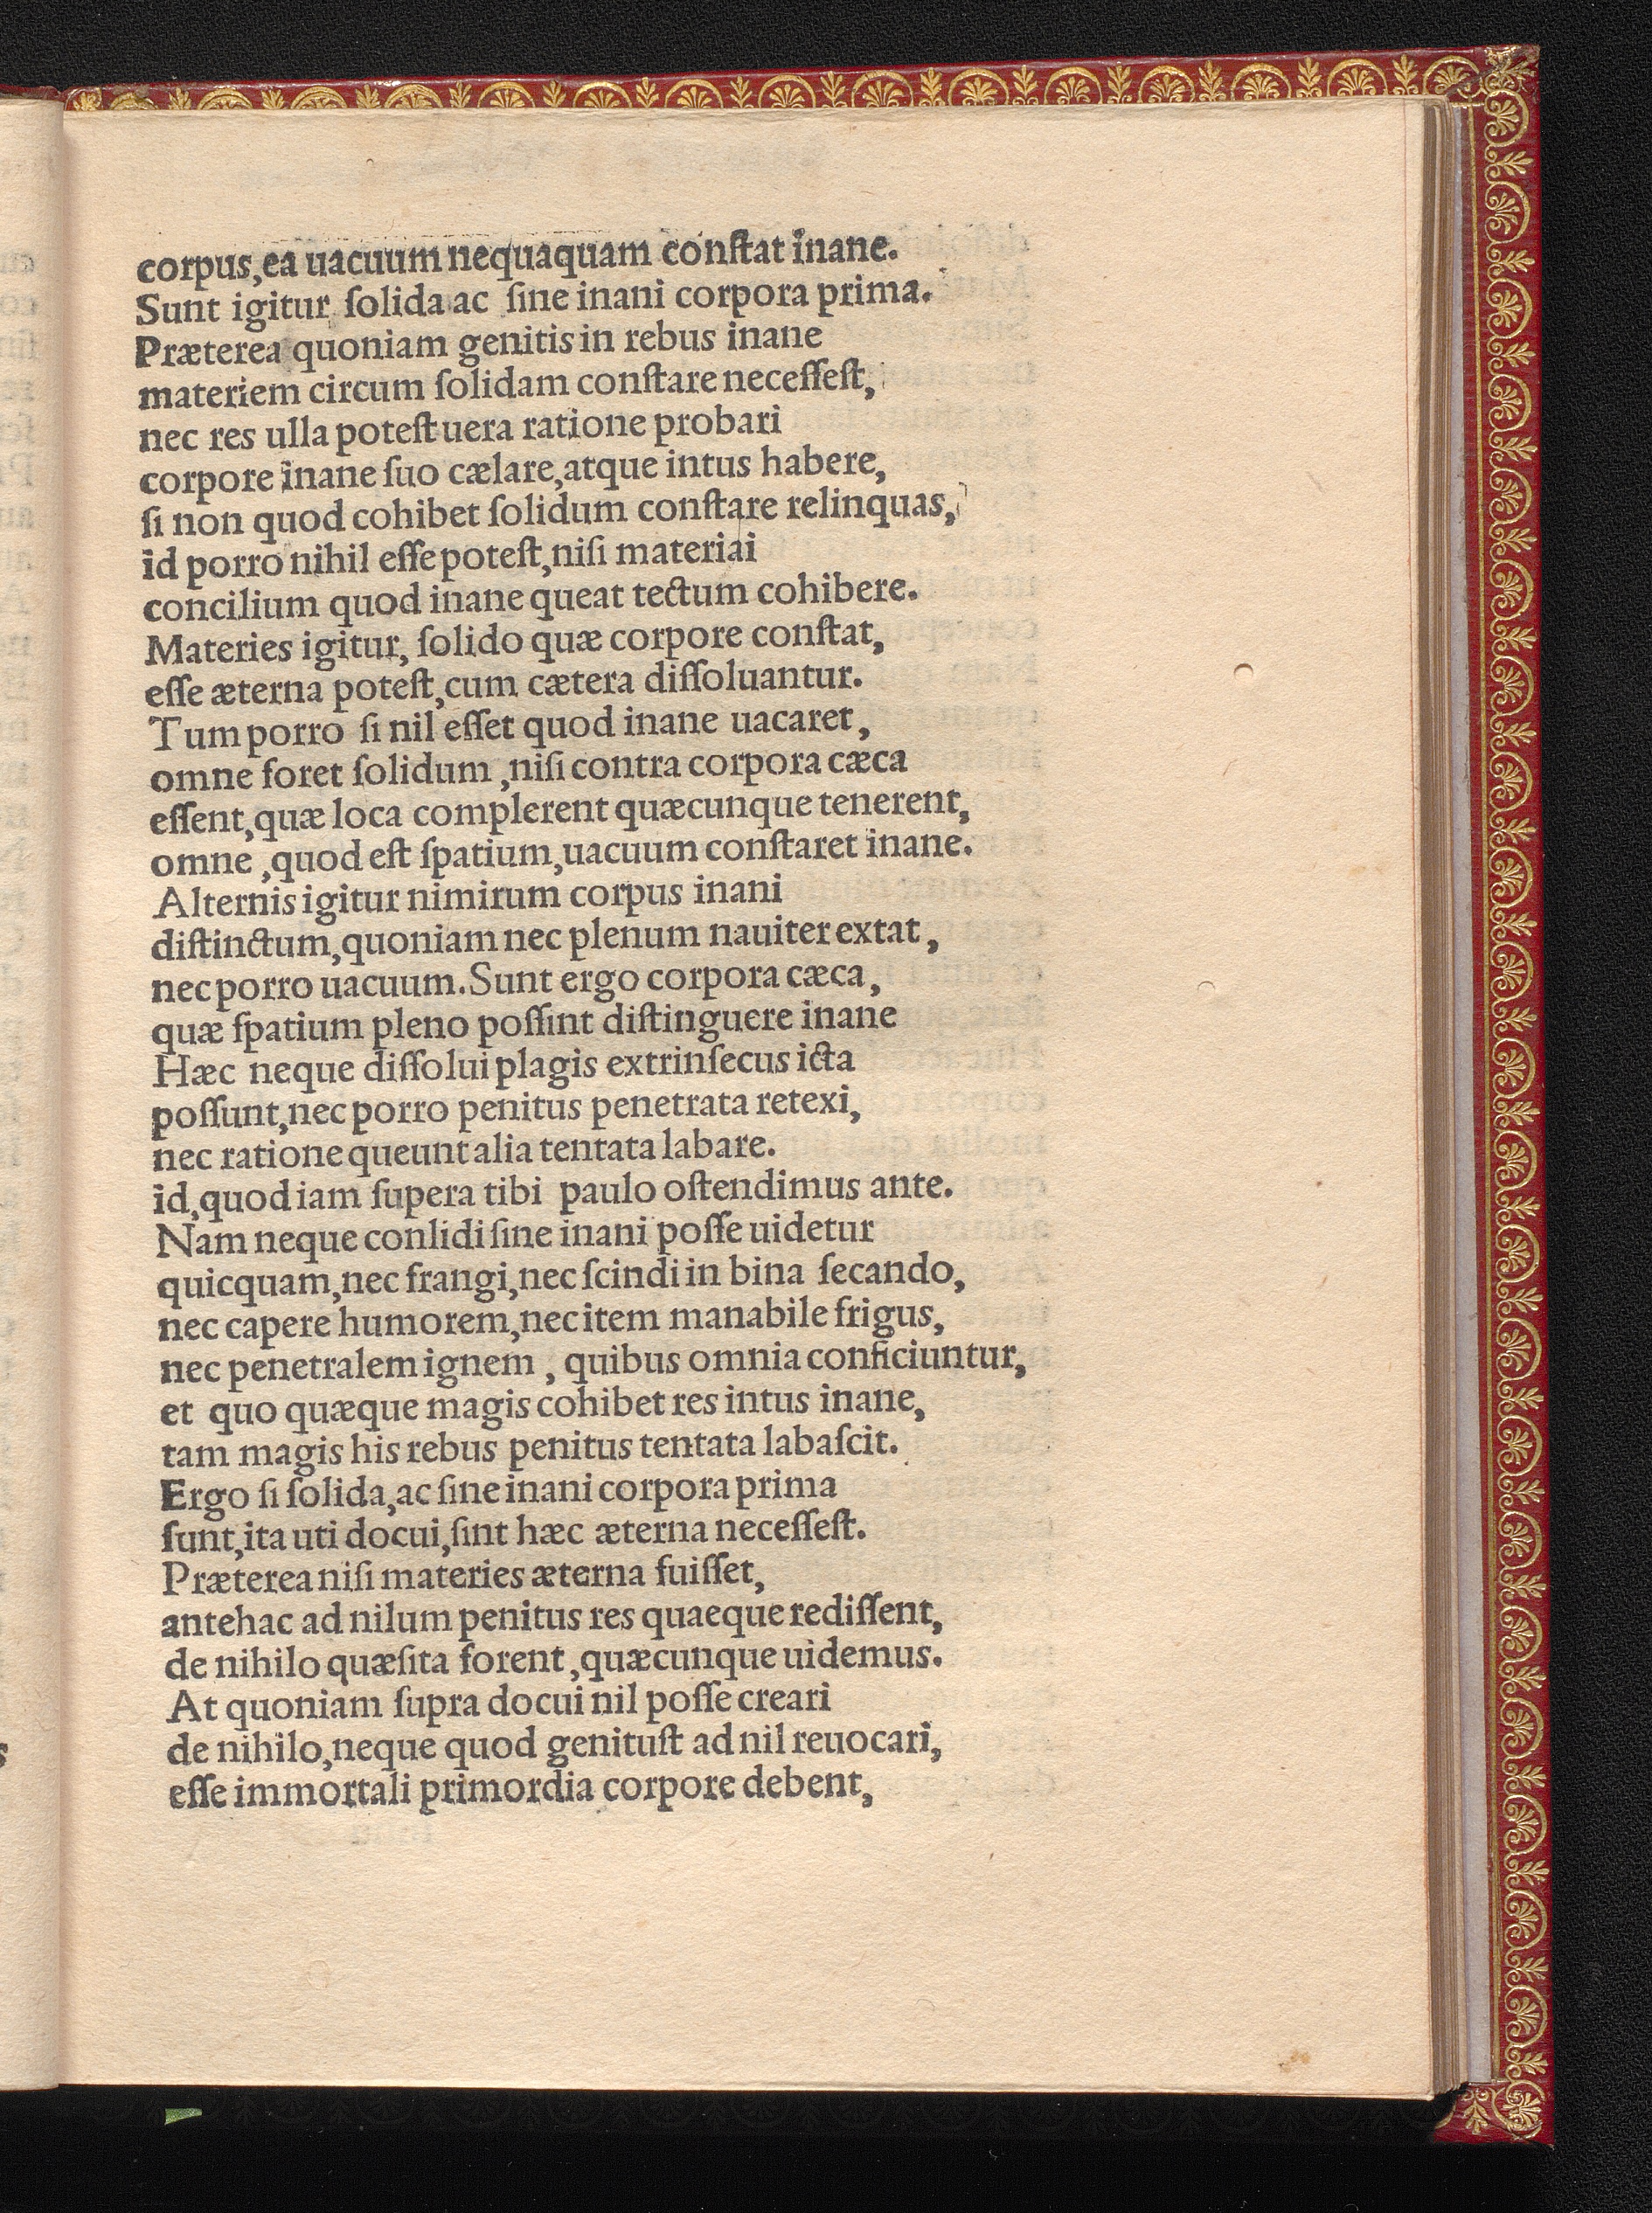 corpus,ea uacuum nequaquam conſtat inane.
Sunt igitur ſolida ac ſine inani corpora prima.
Præterea quoniam genitis in rebus inane
materiem circum ſolidam conſtare neceſſeſt,
nec res ulla poteſt uera ratione probari
corpore inane ſuo cælare,atque intus habere,
ſi non quod cohibet ſolidum conſtare relinquas,
id porro nihil eſſe poteſt,niſi materiai
concilium quod inane queat tectum cohibere.
Materies igitur, ſolido quæ corpore conſtat,
eſſe æterna poteſt,cum cætera diſſoluantur.
Tum porro ſi nil eſſet quod inane uacaret,
omne foret ſolidum ,niſi contra corpora cæca
eſſent,quæ loca complerent quæcunque tenerent,
omne ,quod eſt ſpatium,uacuum conſtaret inane.
Alternis igitur nimirum corpus inani
diſtinctum,quoniam nec plenum nauiter extat,
nec porro uacuum.Sunt ergo corpora cæca,
quæ ſpatium pleno poſſint diſtinguere inane
Hæc neque diſſolui plagis extrinſecus icta
poſſunt,nec porro penitus penetrata retexi,
nec ratione queunt alia tentata labare.
id,quod iam ſupera tibi paulo oſtendimus ante.
Nam neque conlidi ſine inani poſſe uidetur
quicquam,nec frangi,nec ſcindi in bina ſecando,
nec capere humorem,nec item manabile frigus,
nec penetralem ignem , quibus omnia conficiuntur,
et quo quæque magis cohibet res intus inane,
tam magis his rebus penitus tentata labaſcit.
Ergo ſi ſolida,ac ſine inani corpora prima
ſunt,ita uti docui,ſint hæc æterna neceſſeſt.
Præterea niſi materies æterna fuiſſet,
antehac ad nilum penitus res quaeque rediſſent,
de nihilo quæſita forent,quæcunque uidemus.
At quoniam ſupra docui nil poſſe creari
de nihilo,neque quod genituſt ad nil reuocari,
eſſe immortali primordia corpore debent,